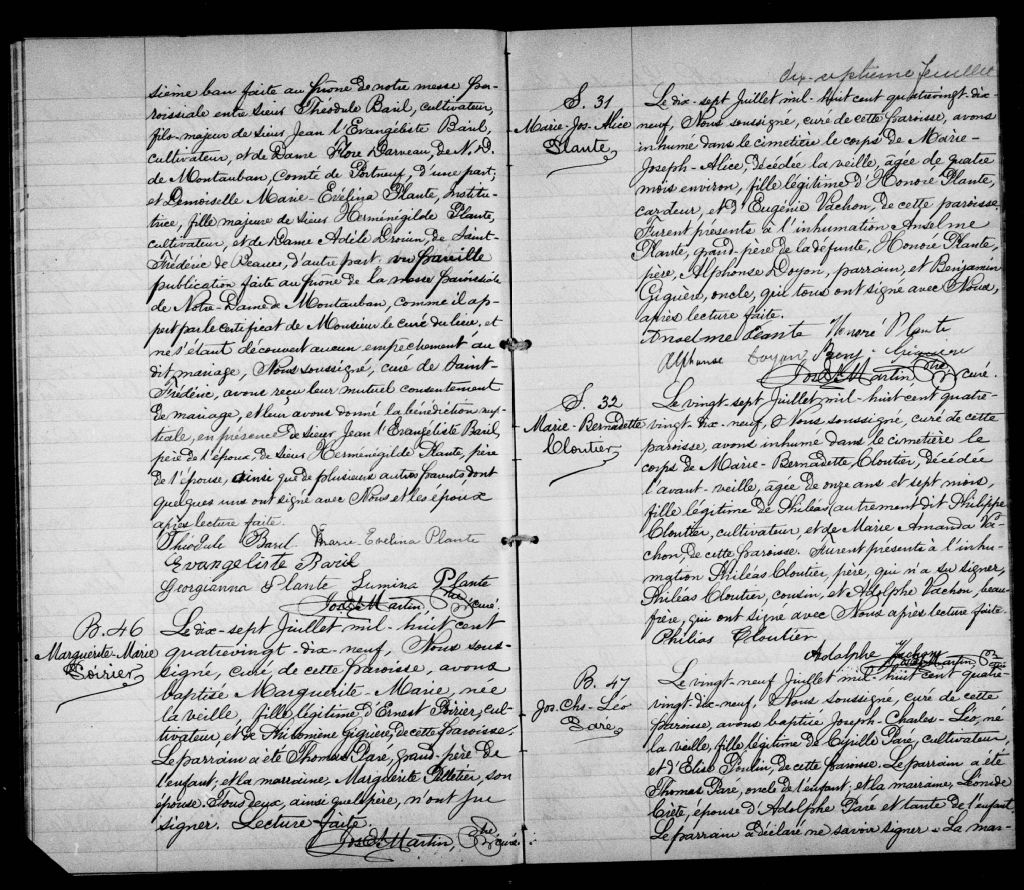 sième ban faite au prône de notre messe pa-
roissiale entre Sieur Théodule Baril, cultivateur,
fils majeur de Sieur Jean l'Evangéliste Baril,
cultivateur, et de Dame Flore Darveau, de N. D.
de Montauban, Comté de Portneuf, d'une part;
et Demoiselle Marie-Evélina Plante, institu-
trice, fille majeure de Sieur Herménégilde Plante,
cultivateur, et de Dame Adèle Drouin de Saint-
Frédéric de Beauce, d'autre part: vu pareille
publication faite au prône de la messe paroissiale
de Notre-Dame de Montauban, comme il ap-
pert par le certificat de Monsieur le curé du lieu, et
ne s'étant découvert aucun empêchement au
dit mariage, Nous soussigné, curé de Saint-
Frédéric, avons reçu leur mutuel consentement
de mariage, et leur avons donné la bénédiction nup-
tiale, en présence de Sieur Jean l'Evangéliste Baril,
père de l'époux, de Sieur Herménégilde Plante, père
de l'épouse, ainsi que de plusieurs autres parents dont
quelques uns ont signé avec Nous et les époux
après lecture faite.
Théodule Baril Marie Evelina Plante
Evangeliste Baril
Georgianna Plante Lumina Plante
Jos. Martin, Ptre curé
B. 46
Marguerite-Marie
Poirier
Le dix-sept Juillet mil-huit cent
quatrevingt dix-neuf, Nous sous-
signé, curé de cette paroisse, avons
baptisé Marguerite-Marie, née
la veille, fille légitime d'Ernest Poirier, cul-
tivateur, et de Philomène Giguère, de cette paroisse.
Le parrain a été Thomas Paré, grand-père de
l'enfant, et la marraine, Marguerite Pelletier, son
épouse. Tous deux, ainsi que le père, n'ont pu
signer. Lecture faite.
Jos. Martin, Ptre curé
dix-septième feuillet
S. 31
Marie-Jos-Alice
Plante
Le dix-sept Juillet mil-huit cent quatrevingt-dix-
neuf, Nous soussigné, curé de cette paroisse, avons
inhumé dans le cimetière le corps de Marie-
Joseph-Alice, décédée la veille, âgée de quatre
mois environ, fille légitime d'Honoré Plante,
cardeur, et d'Eugénie Vachon, de cette paroisse.
Furent présents à l'inhumation Anselme
Plante, grand-père de la défunte, Honoré Plante,
père, Alphonse Doyon, parrain, et Benjamin
Giguère, oncle, qui tous ont signé avec Nous,
après lecture faite.
Anselme Plante Honoré Plante
Alphonse Doyon Benj. Giguère
Jos. Martin, Ptre curé.
S. 32
Marie-Bernadette
Cloutier
Le vingt-sept Juillet mil-huit cent quatre-
vingt-dix-neuf, Nous soussigné, curé de cette
paroisse, avons inhumé dans le cimetière le
corps de Marie-Bernadette Cloutier, décédée
l'avant-veille, âgée de onze ans et sept mois,
fille légitime de Philéas (autrement dit Philippe)
Cloutier, cultivateur, et de Marie Amanda Va-
chon, de cette paroisse. Furent présents à l'inhu-
mation Philéas Cloutier, père, qui n'a su signer,
Philéas Cloutier, cousin, et Adolphe Vachon, beau-
frère, qui ont signé avec Nous après lecture faite.
Philias Cloutier
Adolphe Vachon
Jos. Martin, Ptre curé
B. 47
Jos. Chs-Léo
Paré
Le vingt-neuf Juillet mil-huit cent quatre-
vingt-dix-neuf, Nous soussigné, curé de cette
paroisse, avons baptisé Joseph-Charles-Léo, né
la veille, fille légitime de Cyrille Paré, cultivateur,
et d'Elise Poulin, de cette paroisse. Le parrain a été
Thomas Paré, oncle de l'enfant, et la marraine, Léonide
Crête, épouse d'Adolphe Paré et tante de l'enfant.
Le parrain a déclaré ne savoir signer. La mar-